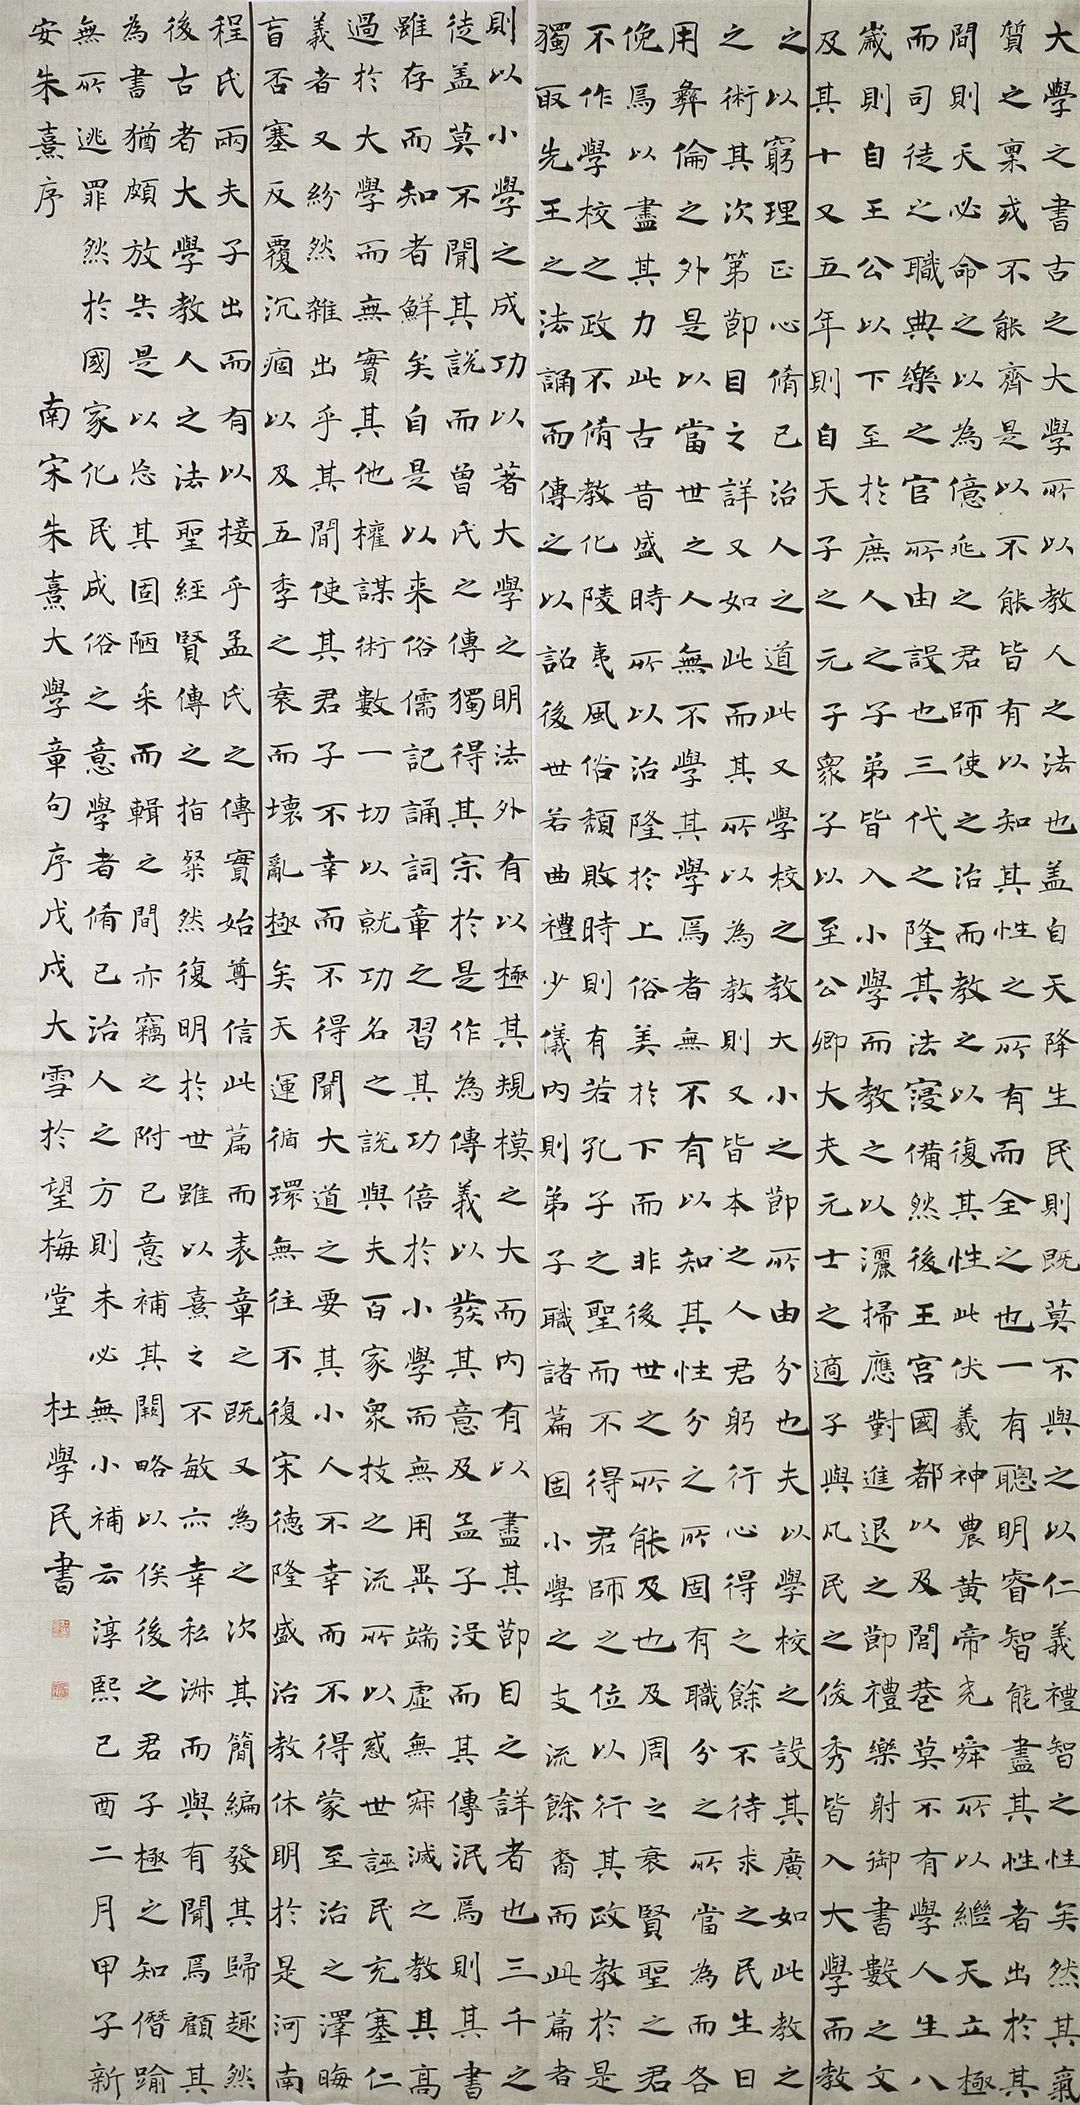 大學之書古之大學所以教人之法也盖自天降生民則既莫不與之以仁義禮智之性矣然其氣
質之稟或不能齊是以不能皆有以知其性之所有而全之也一有聰明睿智能盡其性者出於其
間則天必命之以為億兆之君師使之治而教之以復其性此伏羲神農黃帝堯舜所以繼天立極
而司徒之職典樂之官所由設也三代之隆其法寖備然後王宮國都以及閭巷莫不有學人生八
歲則自王公以下至於庶人之子弟皆入小學而教之以灑掃應對進退之節禮樂射御書數之文
及其十又五年則自天子之元子眾子以至公卿大夫元士之適子與凡民之俊秀皆入大學而教
之以窮理正心脩己治人之道此又學校之教大小之節所由分也夫以學校之設其廣如此教之
之術其次第節目之詳又如此而其所以為教則又皆本之人君躬行心得之餘不待求之民生日
用彝倫之外是以當世之人無不學其學焉者無不有以知其性分之所固有職分之所當為而各
俛焉以盡其力此古昔盛時所以治隆於上俗美於下而非後世之所能及也及周之衰賢聖之君
不作學校之政不脩教化陵夷風俗頹敗時則有若孔子之聖而不得君師之位以行其政教於是
獨取先王之法誦而傳之以詔後世若曲禮少儀內則弟子職諸篇固小學之支流餘裔而此篇者
則以小學之成功以著大學之明法外有以極其規模之大而內有以盡其節目之詳者也三千之
徒盖莫不聞其說而曾氏之傳獨得其宗於是作為傳義以發其意及孟子沒而其傳泯焉則其書
雖存而知者鮮矣自是以来俗儒記誦詞章之習其功倍於小學而無用異端虛無寂滅之教其高
過於大學而無實其他權謀術數一切以就功名之說與夫百家眾技之流所以惑世誣民充塞仁
義者又紛然雜出乎其間使其君子不幸而不得聞大道之要其小人不幸而不得蒙至治之澤晦
盲否塞反覆沉痼以及五季之衰而壞亂極矣天運循環無往不復宋德隆盛治教休明於是河南
程氏兩夫子出而有以接乎孟氏之傳實始尊信此篇而表章之既又為之次其簡編發其歸趣然
後古者大學教人之法聖經賢傳之指粲然復明於世雖以熹之不敏亦幸私淑而與有聞焉顧其
為書猶頗放失是以忘其固陋采而輯之間亦竊之附己意補其闕略以俟後之君子極之知僭踰
無所逃罪然於國家化民成俗之意學者脩己治人之方則未必無小補云淳熙己酉二月甲子新
安朱熹序 南宋朱熹大學章句序戊戌大雪於望梅堂 杜學民書